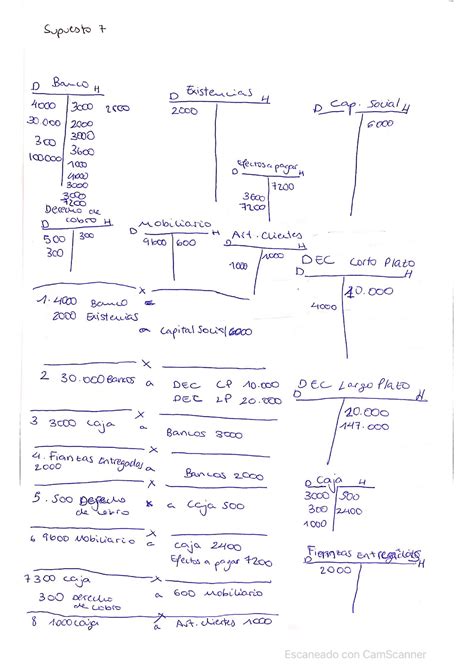 Supuesto 7
D Banco H
4000 3000 2500
30.000 2000
300 3000
100000 3600
1000
4000
3000
3000
7200
D Existencias H
2000
D Cap. Social H
6000
Efectos a pagar
7200
3600
7200
Derecho de
D cobro H
500 300
300
D Mobiliario H
9600 600
D Ant. clientes H
1000 1000
DEC Corto Plazo
D H
10.000
4000
x
1. 4000 Banco
2000 Existencias
a Capital Social 6000
x
2 30.000 Bancos a DEC CP 10.000
DEC LP 20.000
DEC Largo Plazo
D H
20.000
147.000
x
3 3000 caja a Bancos 3000
x
4. Fianzas Entregadas a Bancos 2000
2000
x
5. 500 Derecho a caja 500
de cobro
D Caja H
3000 500
300 2400
1000
x
6 9600 Mobiliario a caja 2400
Efectos a pagar 7200
Fianzas Entregadas
D H
2000
x
7 300 caja
300 Derecho a 600 mobiliario
de cobro
x
8 1000 caja a Ant. clientes 1000
Escaneado con CamScanner